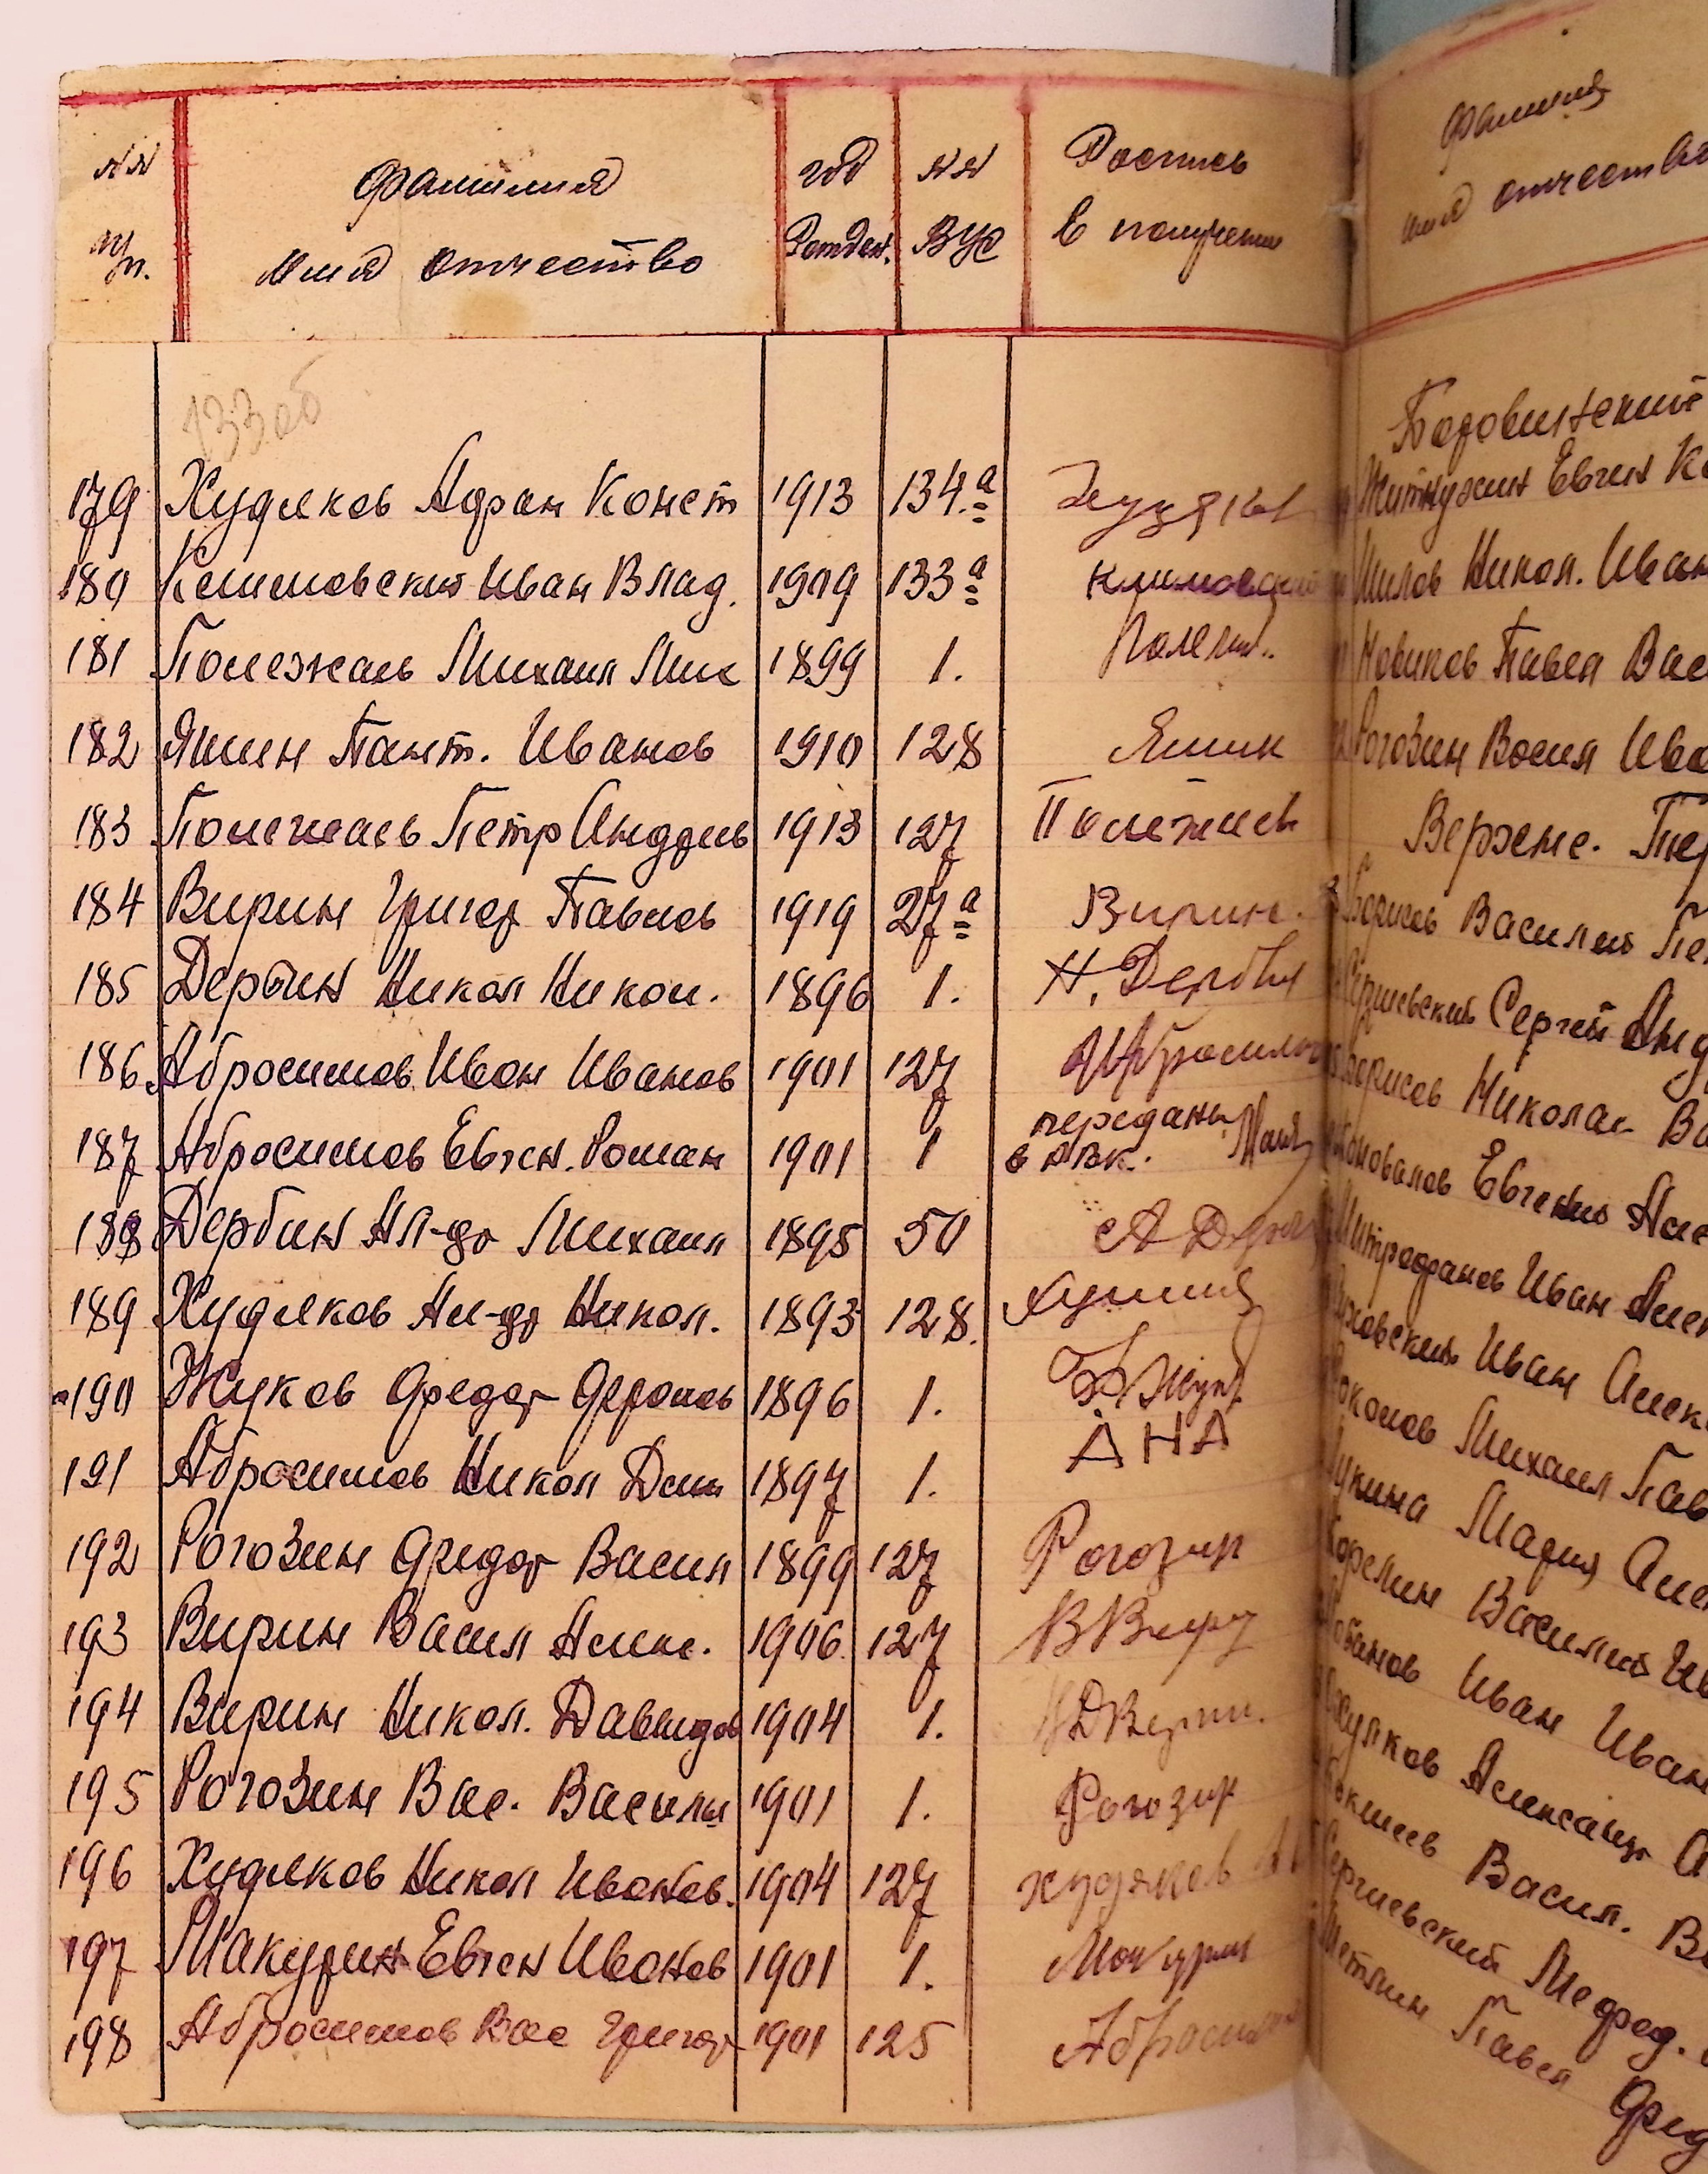 №№ Фамилия год №№ Роспись
пп. имя отчество Рожден. ВУС в получении
133 об
179 Худяков Адриан Конст 1913 134а Худяков
180 Климовский Иван Влад. 1909 133а Климовский
181 Полежаев Михаил Мих 1899 1. Полеж..
182 Яшин Пант. Иванов 1910 128 Яшин
183 Полежаев Петр Андреев 1913 127 Полежаев
184 Вирин Григор Павлов 1919 27а Вирин
185 Дербин Никол Никол. 1896 1. Н. Дербин
186 Абросимов Иван Иванов 1901 127
187 Абросимов Евген. Роман 1901 1 переданы в РВК.
188 Дербин Ал-др Михаил 1895 50
189 Худяков Ал-др Никол. 1893 128.
190 Жуков Федор Федоров 1896 1.
191 Абросимов Никол Дим 1897 1. АНА
192 Рогозин Федор Васил 1899 127 Рогозин
193 Вирин Васил Алекс. 1906 127
194 Вирин Никол. Давыдов 1904 1.
195 Рогозин Вас. Васильев 1901 1. Рогозин
196 Худяков Никол Иванов. 1904 127 худяков
197 Макурин Евген Иванов 1901 1. Макурин
198 Абросимов Вас Григор 1901 125 Абросимов
Фамилия
имя отчество
Житнухин Евген
Шилов Никол. Иван
Новиков Павел Вас
Рогозин Васил Ива
Верхне.
Борисов Василий
Сергиевский Сергей Анд
Борисов Николай Ва
Коновалов Евгений Але
Митрофанов Иван Алек
Иван Алек
Михаил Пав
Лукина Мария Алек
Корелин Василий Ив
Лобанов Иван Иван
Александр
Васил.
Сергиевский Мефод.
Павел Фед